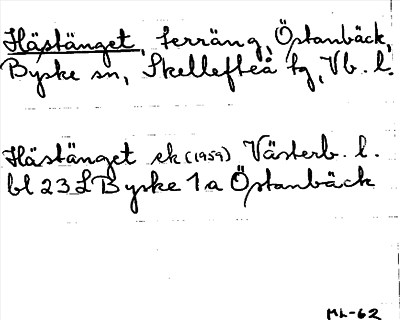 Hästänget, terräng, Östanbäck,
Byske sn, Skellefteå tg, Vb. l.
Hästänget ek (1959) Västerb. l.
bl 23 L Byske 1a Östanbäck
ML-62